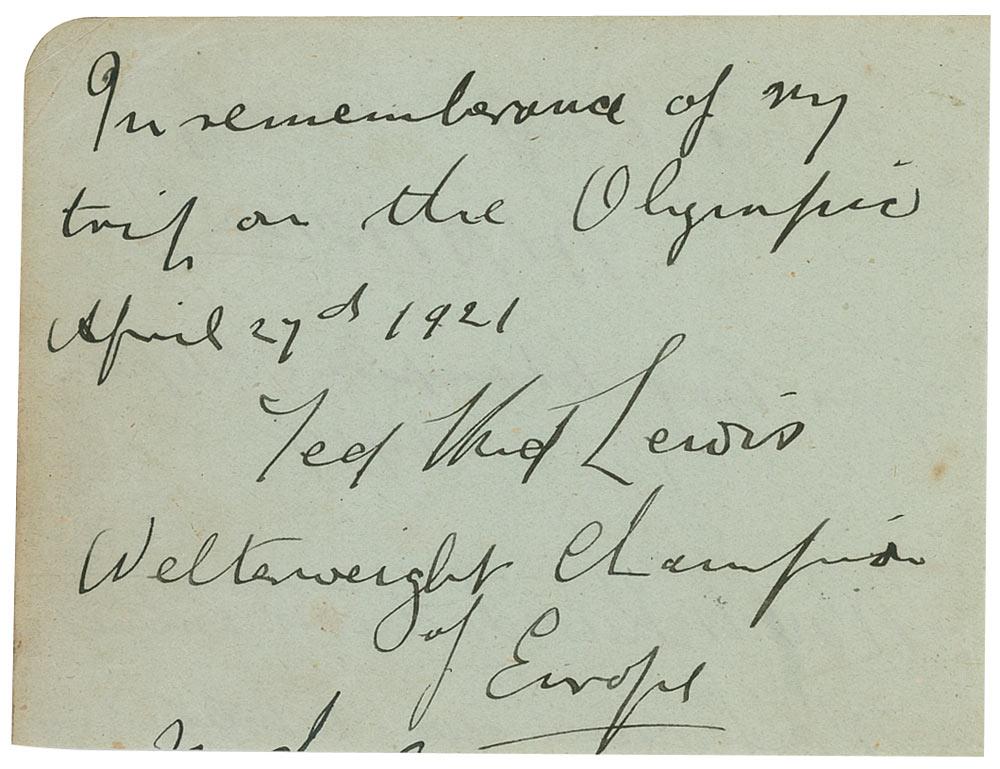 In remembrance of my
trip on the Olympic
April 27d 1921
Ted Kid Lewis
Welterweight Champion
of Europe